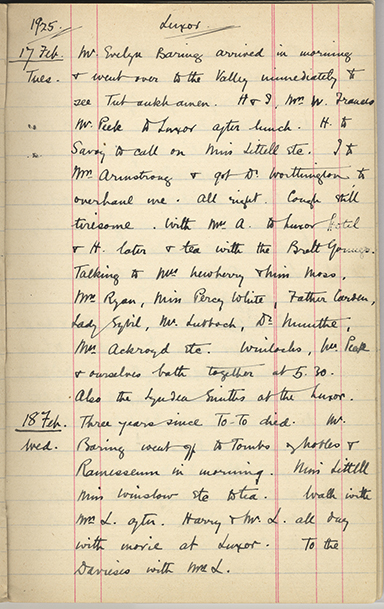 1925. Luxor.
17 Feb. Mr Evelyn Baring arrived in morning
Tues. & went over to the Valley immediately to
see Tut ankh amen. H & I, Mrs W. Francis
Mr Peek to Luxor after lunch. H. to
Savoy to call on Miss Littell etc. I to
Mrs Armstrong & got Dr Worthington to
overhaul me. All right. Cough still
tiresome. With Mrs A. to Luxor Hotel
& H. later & tea with the Bralt
Talking to Mrs Newberry & Miss Moss,
Mrs Ryan, Miss Percy White, Father
Lady Sybil, Mr. Lubbock, Dr Munthe,
Mrs Ackroyd etc. Winlocks, Mr Peek
& ourselves back together at 5.30.
Also the Lyndsa Smiths at the Luxor.
18 Feb. Three years since To-To died. Mr.
Wed. Baring went off to Tombs of Nobles &
Ramesseum in morning. Miss Littell
Miss Winslow etc to tea. Walk with
Mrs L. after. Harry & Mr. L. all day
with movie at Luxor. To the
Davieses with Mrs L.